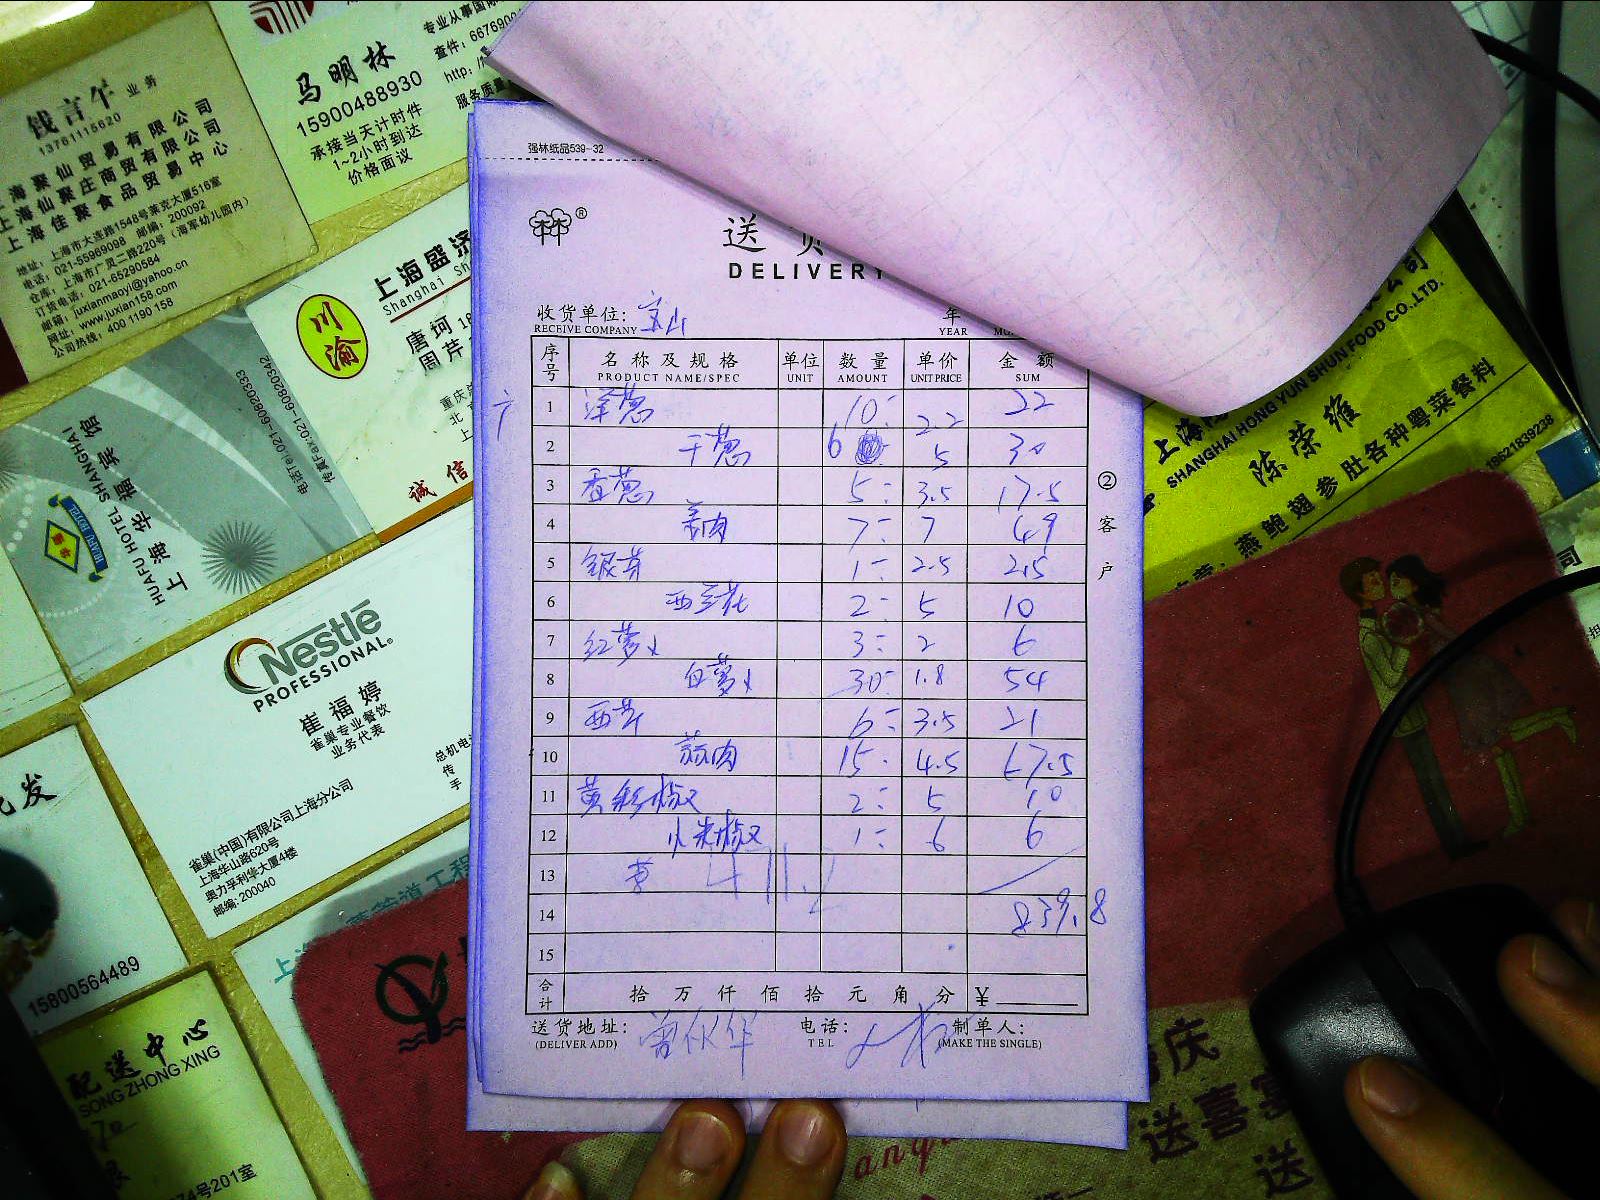 钱言午 业务
13761115620
上海聚仙贸易有限公司
上海仙聚庄商贸有限公司
上海佳聚食品贸易中心
地址: 上海市大连路1548号莱克大厦516室
电话: 021-55969098 邮编: 200092
仓库: 上海市广灵二路220号 (海军幼儿园内)
订货电话: 021-65290584
邮箱: juxianmaoyi@yahoo.cn
网址: www.juxian158.com
公司热线: 400 1190 158
专业从事国际
查件: 6676900
http:/
服务质量
马明林
15900488930
承接当天计时件
1~2小时到达
价格面议
川渝
上海盛济
Shanghai Sh
唐珂 18
周芹
重庆
北
上
诚信
上海华福宾馆
HUAFU HOTEL SHANGHAI
HUAFU HOTEL
电话Tel.021-60820342
传真Fax:021-60820333
Nestlé
PROFESSIONAL
崔福婷
雀巢专业餐饮
业务代表
总机电
传
手
雀巢(中国)有限公司上海分公司
上海华山路620号
奥力孚利华大厦4楼
邮编: 200040
15800564489
配送中心
SONG ZHONG XING
74号201室
强林纸品539-32
送货
DELIVERY
收货单位: 宝山 年
RECEIVE COMPANY YEAR
序号 名称及规格 单位 数量 单价 金额
PRODUCT NAME/SPEC UNIT AMOUNT UNIT PRICE SUM
1 洋葱 10 2.2 22
2 干葱 6 5 30
3 香葱 5 3.5 17.5
4 姜肉 7 7 49
5 银芽 1 2.5 2.5
6 西兰花 2 5 10
7 红萝卜 3 2 6
8 白萝卜 30 1.8 54
9 西芹 6 3.5 21
10 蒜肉 15 4.5 67.5
11 黄彩椒 2 5 10
12 小米椒 1 6 6
13 471.2
14 839.8
15
合计 拾万仟佰拾元角分 ¥
送货地址: 电话: 制单人:
(DELIVER ADD) TEL (MAKE THE SINGLE)
②客户
公司
SHANGHAI HONG YUN SHUN FOOD CO.,LTD.
陈荣维
燕鲍翅参肚各种粤菜餐料
18621839238
送喜宴
送